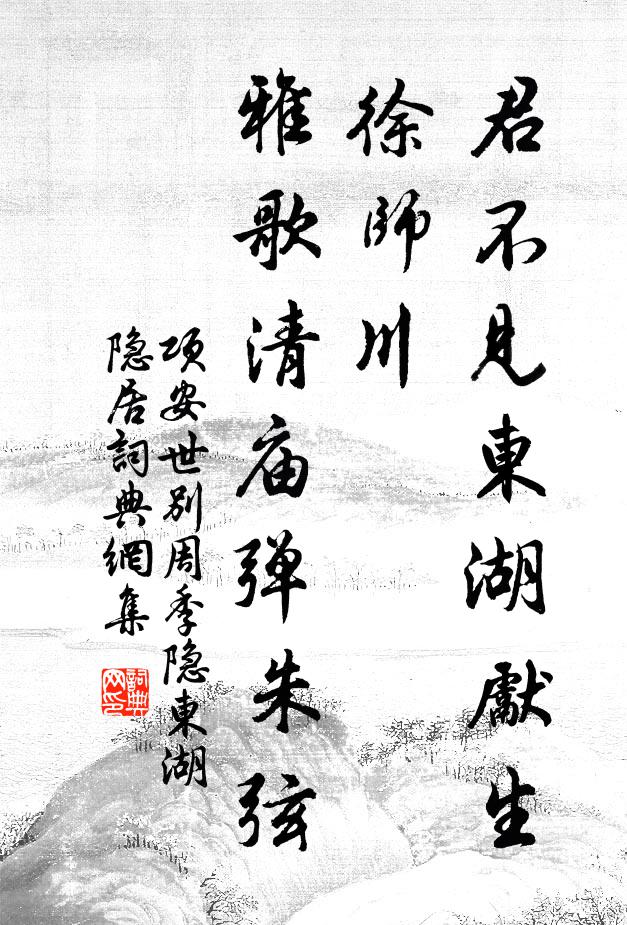 君不見東湖獻生
徐師川
雅歌清庙弹朱弦
项安世别周季隐東湖
隐居詞典網集
詞典网印